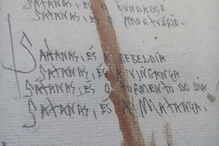 SATANAS, ÉS O FUNDADOR
SATANAS, ÉS O MORTUÁRIO.
SATANAS, ÉS A REBELDIA
SATANAS, ÉS A VINGANÇA
SATANAS, ÉS O TORMENTO DO DIA
SATANAS, ÉS A MATANÇA.